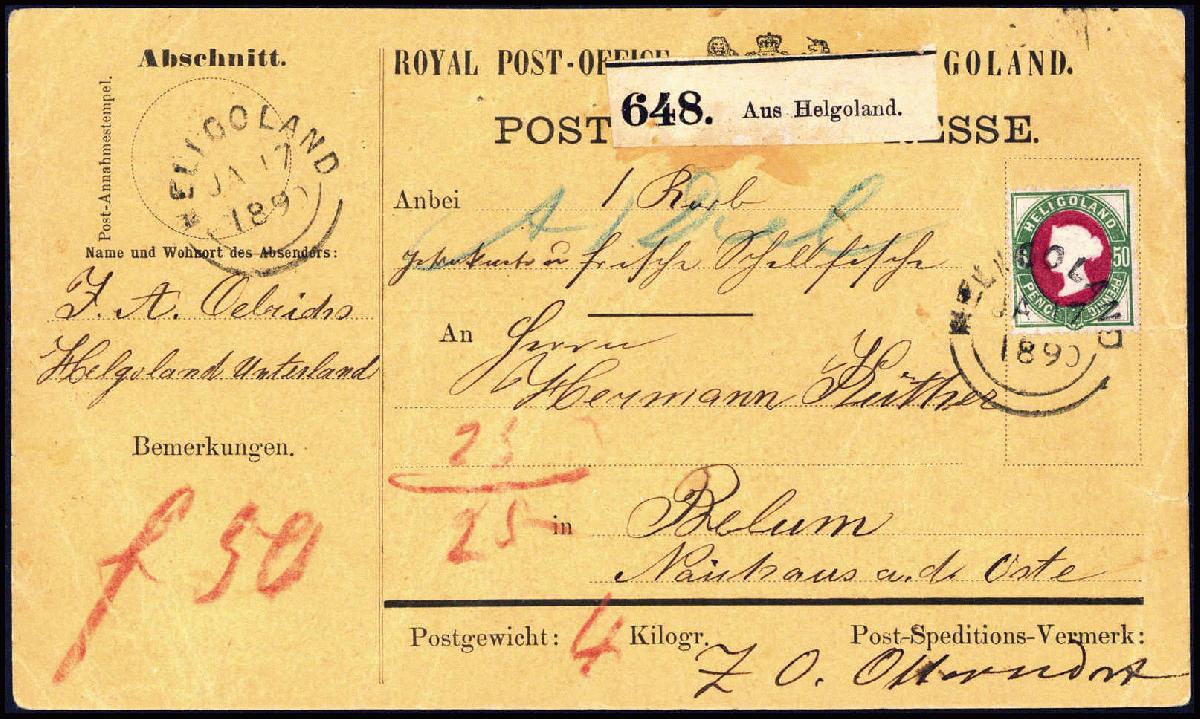 Abschnitt.
Post-Annahmestempel.
HELIGOLAND
JA 17
1890
Name und Wohnort des Absenders:
J. A. Oelrichs
Helgoland Unterland
Bemerkungen.
f 50
ROYAL POST-OFFICE GOLAND.
648. Aus Helgoland.
POST ESSE.
Anbei 1 Korb
frische Schellfische
An Herrn
Hermann
25
25
in Belum
Neuhaus a. d. Oste
Postgewicht: 4 Kilogr.
Post-Speditions-Vermerk:
Z O. Otterndorf
HELIGOLAND
50
PENCE PFENNIG
HELIGOLAND
1890